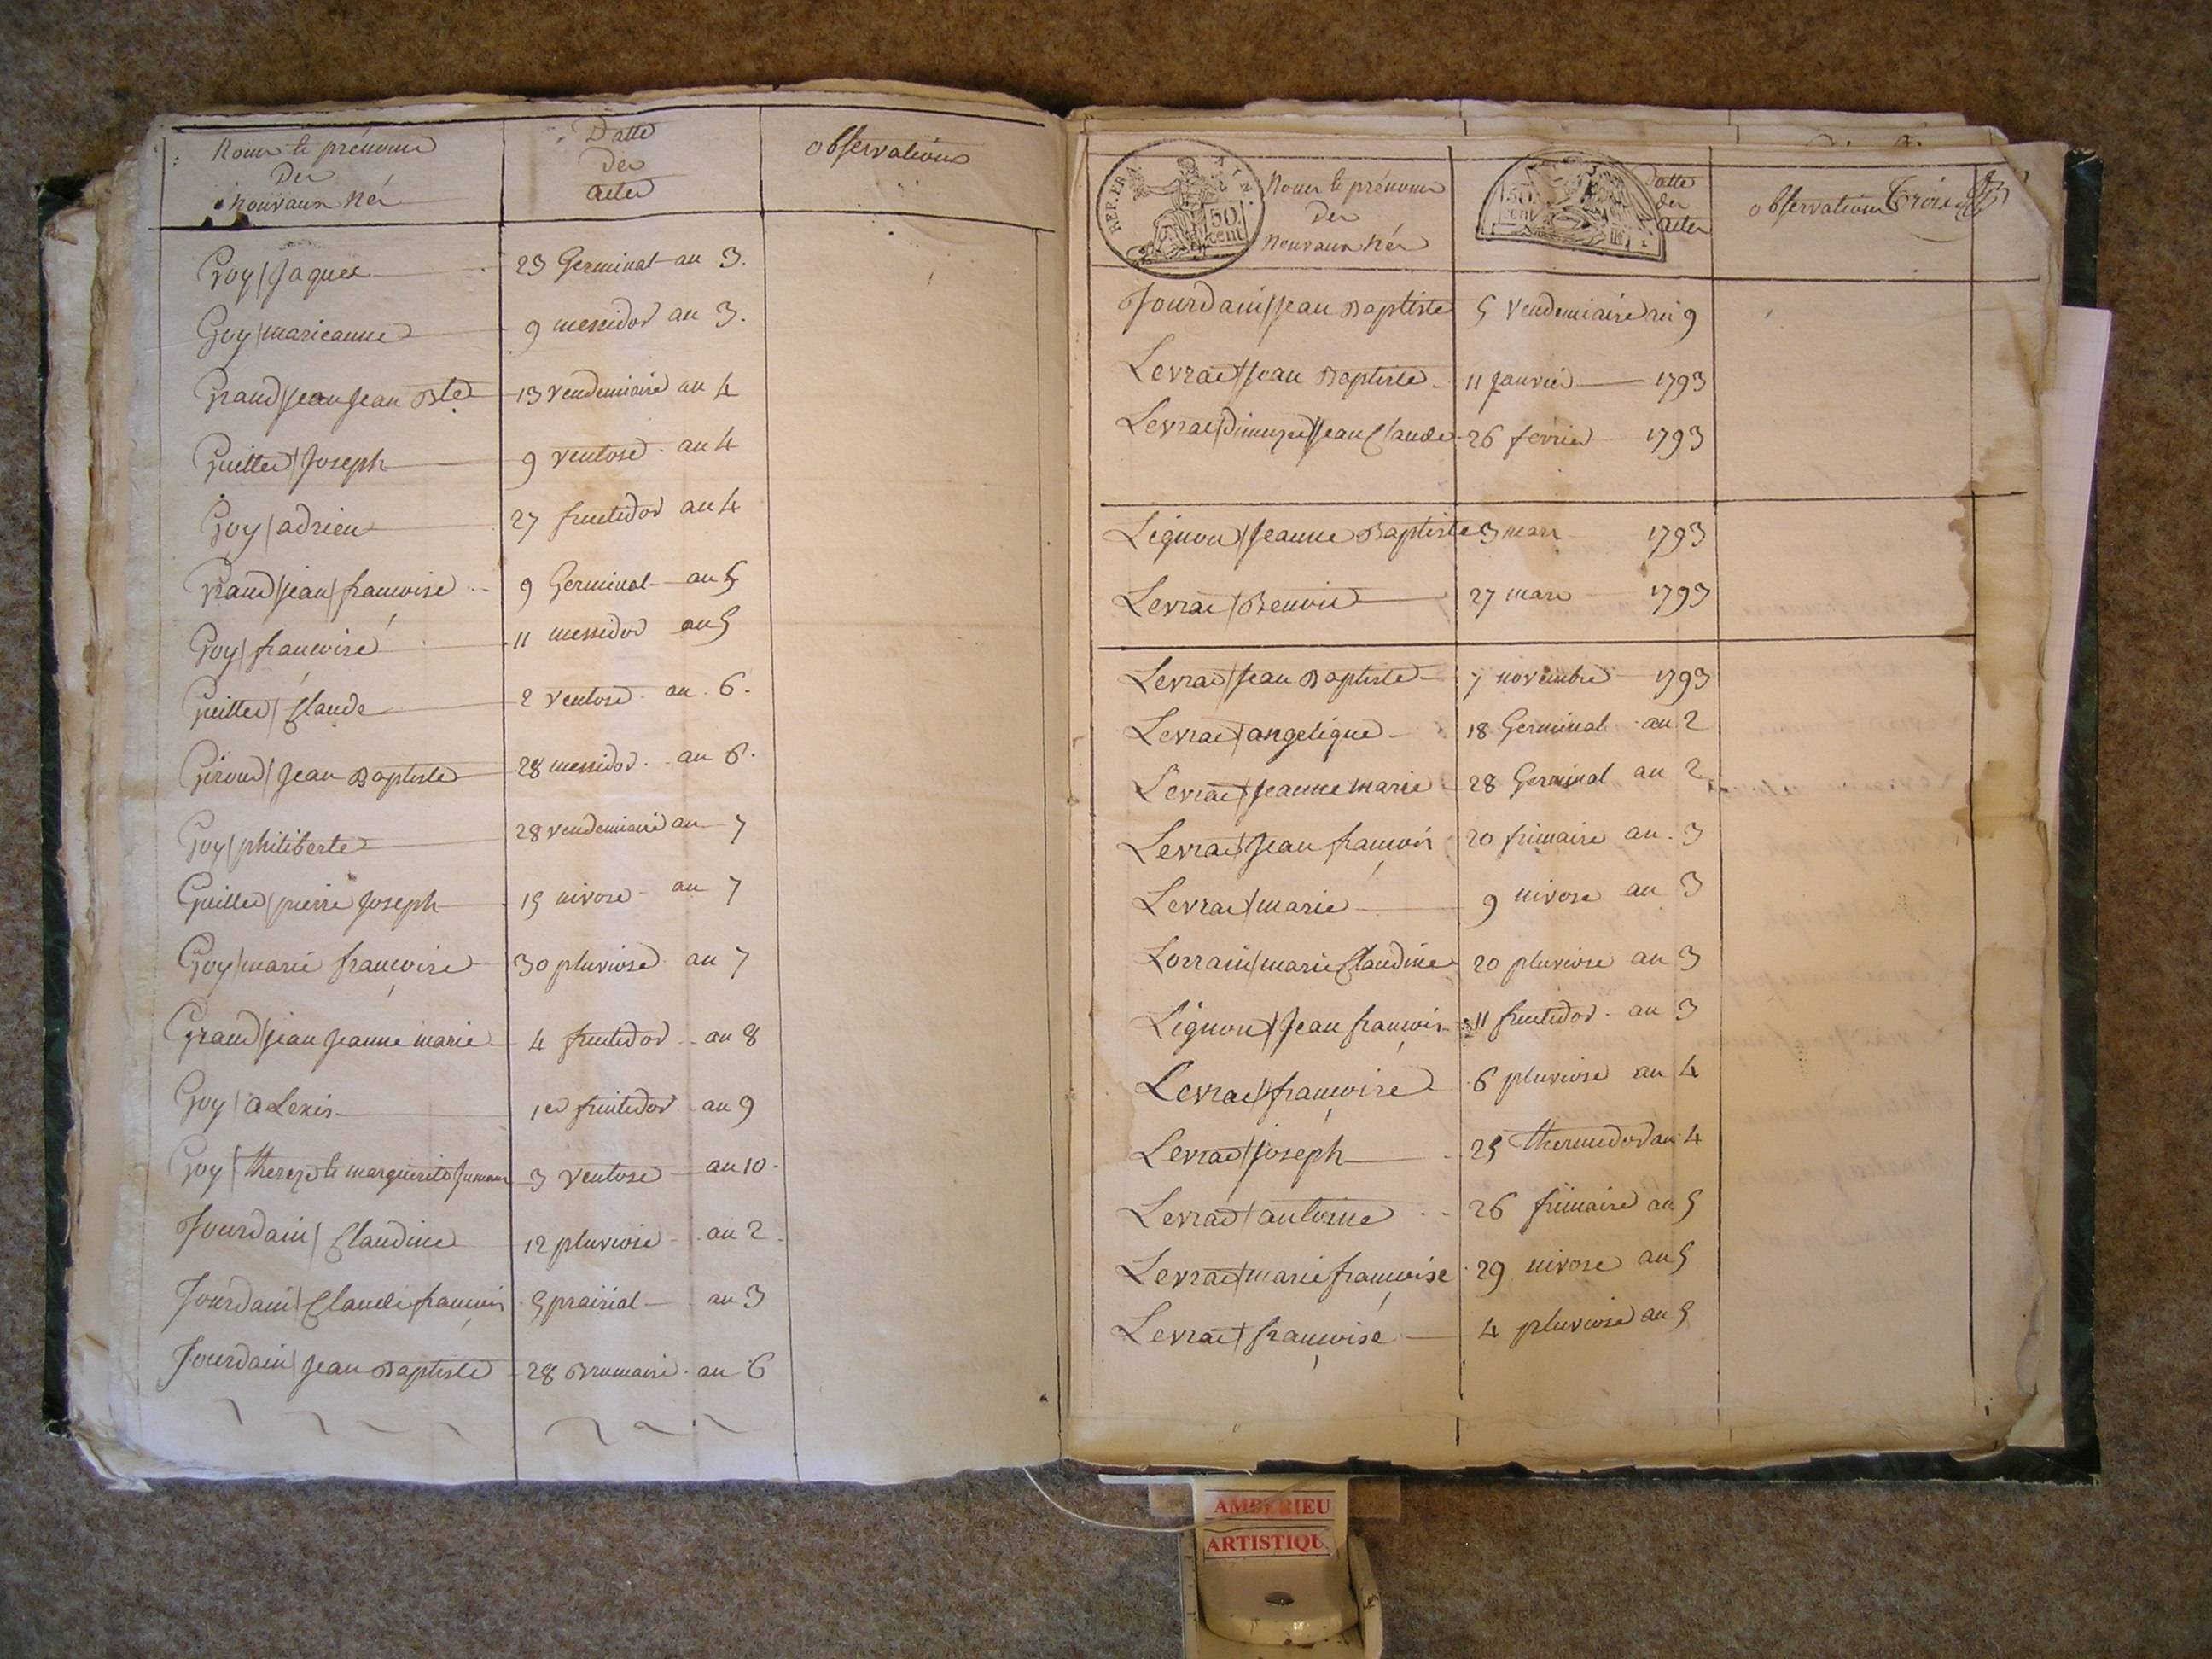 Noms & prénoms
Des
Nouvaux Nés
Datte
des
actes
observations
Goy / Jaques 23 Germinal an 3.
Goy / marieanne 9 messidor an 3.
Grand / Jean Jean Bte 13 vendemiaire an 4
Guillet / Joseph 9 ventose an 4
Goy / adrien 27 fructidor an 4
Grand / jean / francoise 9 Germinal an 5
Goy / francoise 11 messidor an 5
Guillet / Claude 2 ventose an 6.
Giroud / Jean Baptiste 28 messidor an 6.
Goy / philiberte 28 vendemiaire an 7
Guillet / pierre Joseph 15 nivose an 7
Goy / marie françoise 30 pluviose an 7
Grand / jean Jeanne marie 4 fructidor an 8
Goy / alexis 1er fructidor an 9
Goy / thereze & marguerite 3 ventose an 10.
Jourdain / Claudine 12 pluviose an 2.
Jourdain / Claude françois 5 prairial an 3
Jourdain / Jean Baptiste 28 Brumaire an 6
REP. FRA
50
cent
Noms & prénoms
Des
Nouvaux Nés
50
cent
Datte
des
actes
observations
Trois
Jourdain / Jean Baptiste 5 Vendemiaire an 9
Levrat / Jean Baptiste 11 Janvier 1793
Levrat / Jean Claude 26 fevrier 1793
Lignon / Jeanne Baptiste 3 mars 1793
Levrat / Benoit 27 mars 1793
Levrat / Jean Baptiste 7 novembre 1793
Levrat / angelique 18 Germinal an 2
Levrat / Jeanne marie 28 Germinal an 2
Levrat / Jean françois 20 frimaire an 3
Levrat / marie 9 nivose an 3
Lorrain / marie Claudine 20 pluviose an 3
Lignon / Jean françois 11 fructidor an 3
Levrat / françoise 6 pluviose an 4
Levrat / joseph 25 thermidor an 4
Levrat / antoine 26 frimaire an 5
Levrat / marie françoise 29 nivose an 5
Levrat / françoise 4 pluviose an 5
AMBERIEU
ARTISTIQU